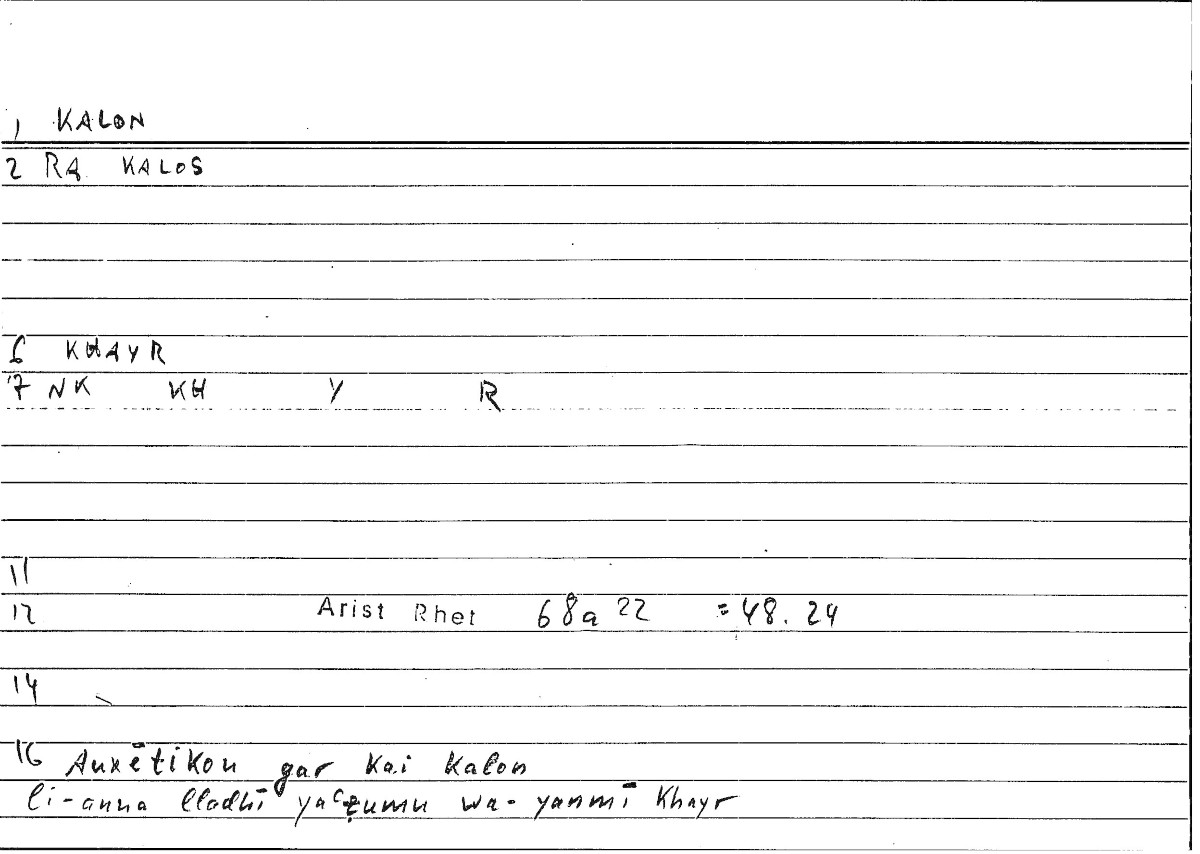 1 KALON
2 RA KALOS
6 KHAYR
7 NK KH Y R
11
12 Arist Rhet 68a 22 = 48. 24
14
16 Auxētikon gar kai kalon
li-anna lladhī yaʿẓumu wa-yanmī khayr